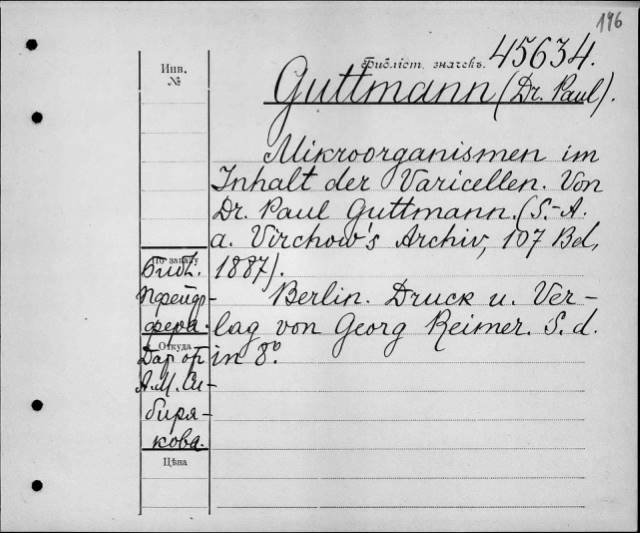 196
Библіот. значекъ. 45634.
Инв.
№
Guttmann (Dr. Paul).
Mikroorganismen im
Inhalt der Varicellen. Von
Dr. Paul Guttmann. (S.-A.
a. Virchow's Archiv, 107 Bd,
1887).
Berlin. Druck u. Ver-
lag von Georg Reimer. S. d.
in 8º.
По заказу
Библ.
Пфейф-
фера.
Откуда
Дар от
А. М. Си-
биря-
кова.
Цѣна